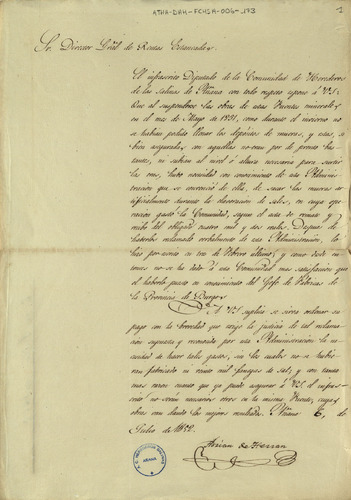 ATHA-DAH-FCHSA-006-173
1
Sr. Director Gral de Rentas Estancadas
El infrascrito Diputado de la Comunidad de Herederos
de las Salinas de Añana con todo respeto espone á V.S:
Que al suspenderse las obras de estas Fuentes minerales
en el mes de Mayo de 1851, como durante el invierno no
se habian podido llenar los depósitos de mueras, y estas, se
bien aseguradas en aquellas no eran por de pronto bas-
tantes, ni subian al nivel ó altura necesaria para surtir
las eras, hubo necesidad con conocimiento de esta Adminis-
tracion que se convenció de ella, de sacar las mueras ar-
tificialmente durante la elaboracion de sales, en cuya ope-
racion gastó la Comunidad, segun el acta de remate y
recibo del obligado cuatro mil y dos reales. Despues de
haberlos reclamado verbalmente de esta Administracion, lo
hizo por escrito en tres de Febrero último; y como desde en-
tonces no se ha dado á esta Comunidad mas satisfaccion que
el haberlo puesto en conocimiento del Gefe de Salinas de
la Provincia de Burgos
A V.S. suplica se sirva ordenar su
pago con la brevedad que exige la justicia de tal reclama-
cion apurada y reconocida por esta Administracion la nece-
sidad de hacer tales gastos, sin los cuales no se hubie-
ran fabricado ni cinco mil fanegas de sal, y con tanta
mas razon cuanto que ya puede asegurar á V.S. el infras-
crito no serán necesarias otras en la misma Fuente, cuyas
obras van dando los mejores resultados. Añana 6, de
Julio de 1852.
Adrian de Herran